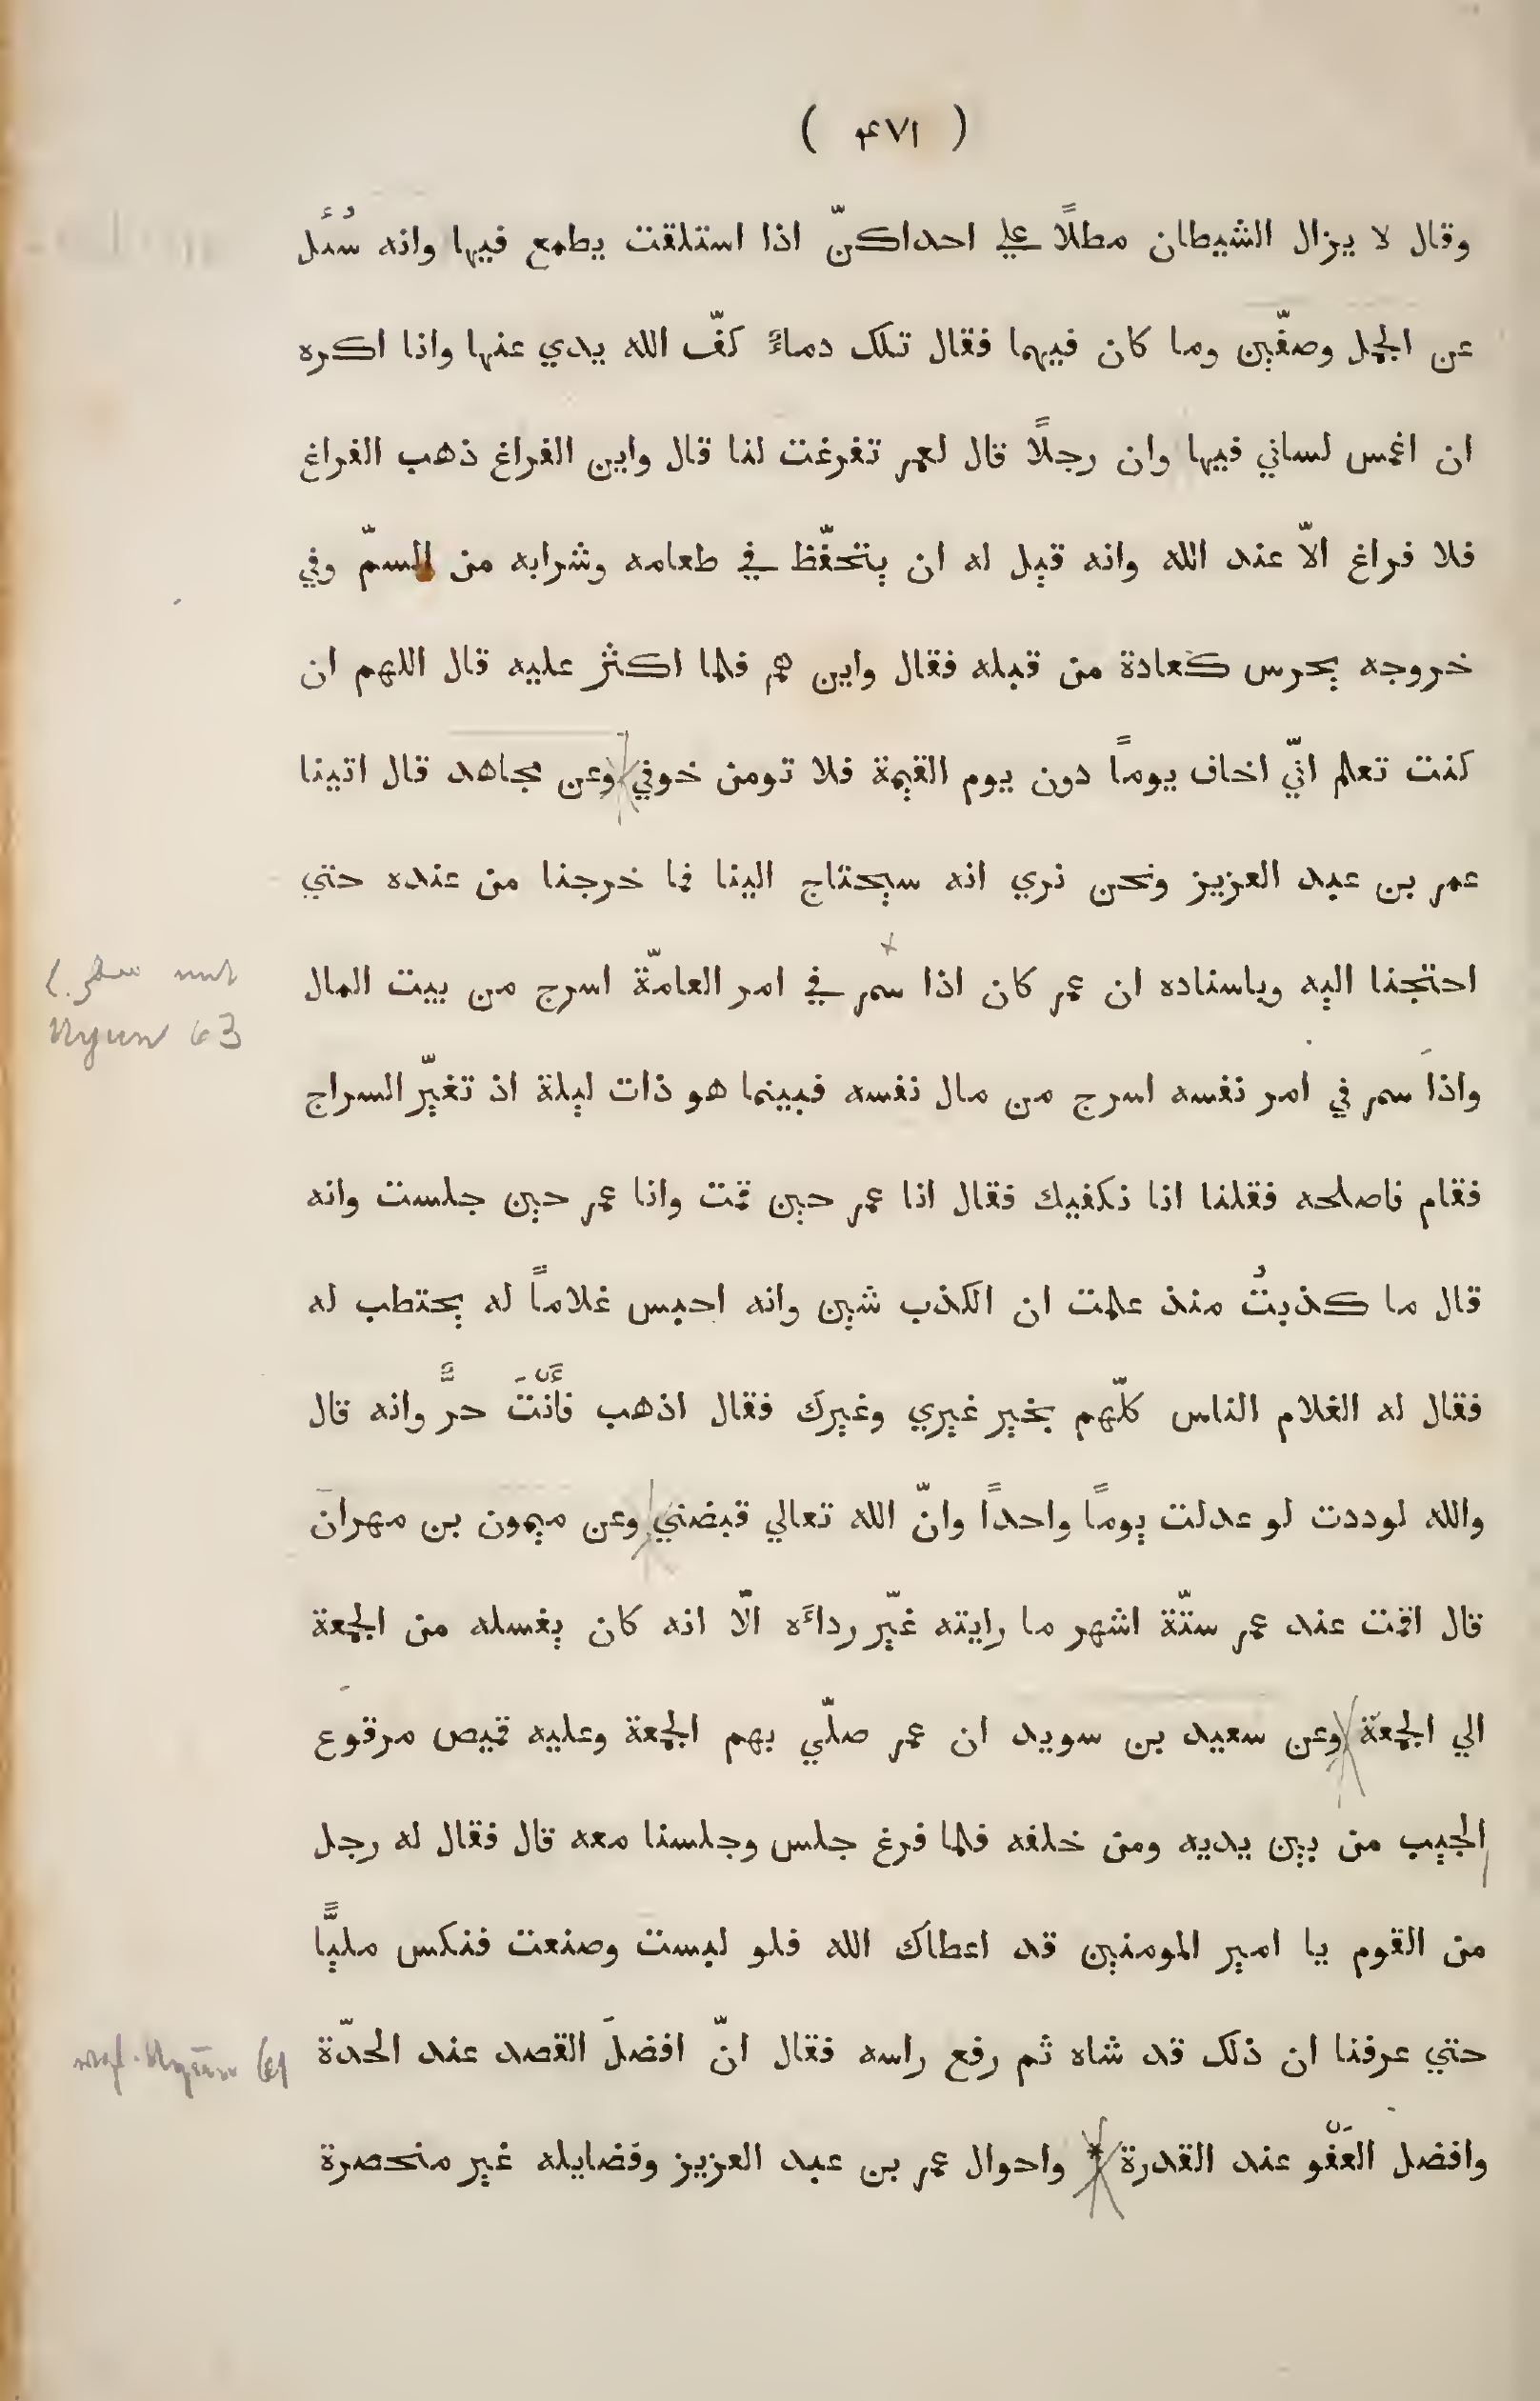 ( ۴۷۱ )
وقال لا يزال الشيطان مطلاً علي احداكنّ اذا استلقت يطمع فيها وانه سُئل
عن الجمل وصفّين وما كان فيهما فقال تلك دماءٌ كفّ الله يدي عنها وانا اكره
ان اغمس لساني فيها وان رجلاً قال لعمر تفرغت لنا قال واين الفراغ ذهب الفراغ
فلا فراغ الاّ عند الله وانه قيل له ان يتحفّظ في طعامه وشرابه من السمّ وفي
خروجه بحرس كعادة من قبله فقال واين هم فلما اكثر عليه قال اللهم ان
كنت تعلم انّي اخاف يوماً دون يوم القيمة فلا تومن خوفي وعن مجاهد قال اتينا
عمر بن عبد العزيز ونحن نري انه سيحتاج الينا فما خرجنا من عنده حتي
احتجنا اليه وباسناده ان عمر كان اذا سمر في امر العامّة اسرج من بيت المال
واذا سمر في امر نفسه اسرج من مال نفسه فبينما هو ذات ليلة اذ تغيّر السراج
فقام فاصلحه فقلنا انا نكفيك فقال انا عمر حين قمت وانا عمر حين جلست وانه
قال ما كذبتُ منذ علمت ان الكذب شين وانه احبس غلاماً له يحتطب له
فقال له الغلام الناس كلّهم بخير غيري وغيرك فقال اذهب فأَنْتَ حرٌّ وانه قال
والله لوددت لو عدلت يوماً واحداً وانّ الله تعالي قبضني وعن ميمون بن مهران
قال اقمت عند عمر ستّة اشهر ما رايته غيّر رداءَه الّا انه كان يغسله من الجمعة
الي الجمعة وعن سعيد بن سويد ان عمر صلّي بهم الجمعة وعليه قميص مرقوع
الجيب من بين يديه ومن خلفه فلما فرغ جلس وجلسنا معه قال فقال له رجل
من القوم يا امير المومنين قد اعطاك الله فلو لبست وصنعت فنكس مليًّا
حتي عرفنا ان ذلك قد شاه ثم رفع راسه فقال انّ افضلَ القصد عند الحدّة
وافضل العَفْو عند القدرة * واحوال عمر بن عبد العزيز وفضايله غير منحصرة
63
61